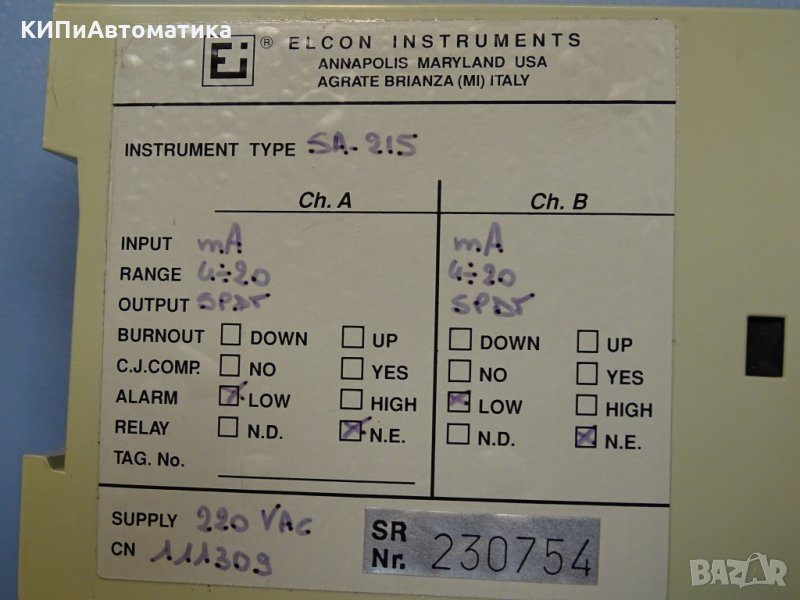 КИПиАвтоматика
Ei ® ELCON INSTRUMENTS
ANNAPOLIS MARYLAND USA
AGRATE BRIANZA (MI) ITALY
INSTRUMENT TYPE SA-215
Ch. A Ch. B
INPUT mA mA
RANGE 4÷20 4÷20
OUTPUT SPDT SPDT
BURNOUT DOWN UP DOWN UP
C.J.COMP. NO YES NO YES
ALARM LOW HIGH LOW HIGH
RELAY N.D. N.E. N.D. N.E.
TAG. No.
SUPPLY 220 VAC
CN 111309
SR Nr. 230754
BAZAR